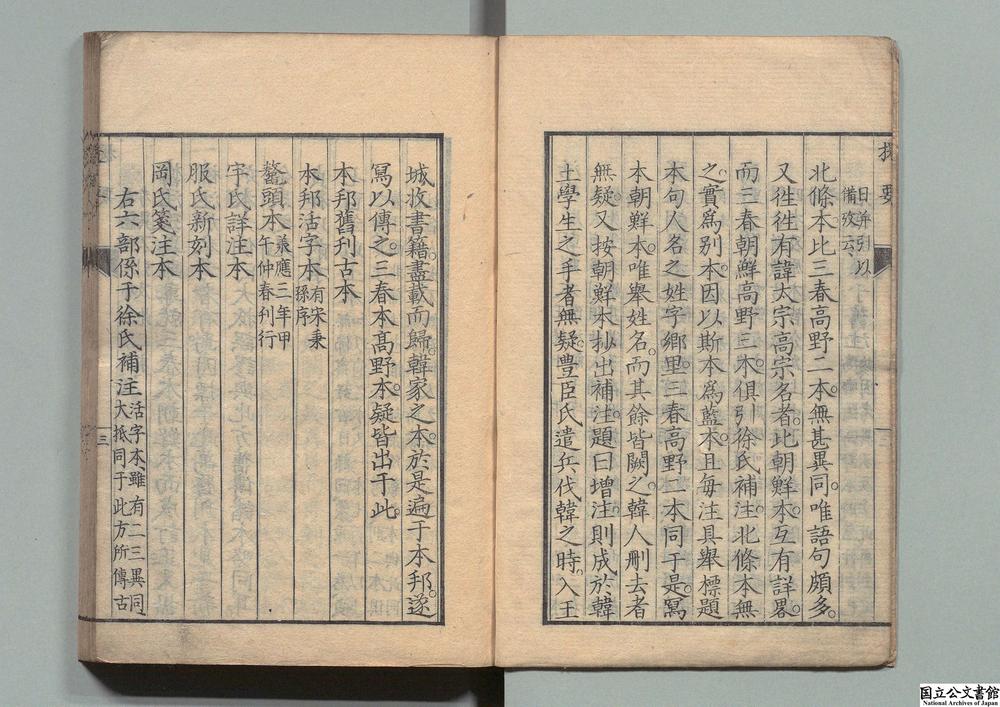 日并引以
備攷云
北條本比三春高野二本。無甚異同。唯語句頗多。
又徃徃有諱太宗高宗名者。比朝鮮本。互有詳畧。
而三春朝鮮高野三本俱引徐氏補注。北條本無
之。實爲别本。因以斯本爲藍本。且每注具舉標題
本句人名之姓字鄉里。三春高野二本同于是。寫
本朝鮮本。唯舉姓名。而其餘皆闕之。韓人刪去者
無疑。又按朝鮮本抄出補注。題曰增注。則成於韓
土學生之手者無疑。豊臣氏遣兵伐韓之時。入王
城收書籍。盡載而歸。韓家之本。於是遍于本邦。遂
寫以傳之。三春本髙野本。疑皆出于此。
本邦舊刊古本
本邦活字本 有宋秉
孫序
鼇頭本 承應三年甲
午仲春刊行
宇氏詳注本
服氏新刻本
岡氏箋注本
右六部係于徐氏補注 活字本。雖有二三異同。
大抵同于此方所傳古
三
提要
国立公文書館
National Archives of Japan